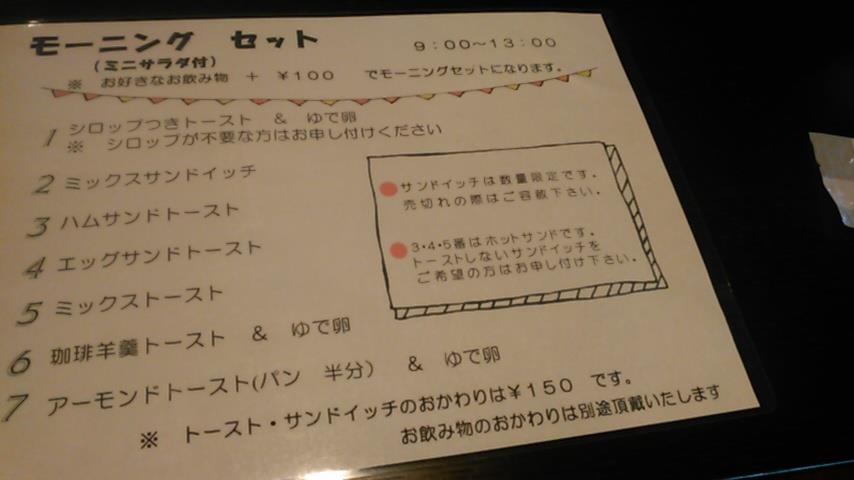 モーニング セット
9：00～13：00
（ミニサラダ付）
※ お好きなお飲み物 ＋ ￥100 でモーニングセットになります。
1 シロップつきトースト ＆ ゆで卵
※ シロップが不要な方はお申し付けください
2 ミックスサンドイッチ
3 ハムサンドトースト
4 エッグサンドトースト
5 ミックストースト
6 珈琲羊羹トースト ＆ ゆで卵
7 アーモンドトースト(パン 半分） ＆ ゆで卵
サンドイッチは数量限定です。
売切れの際はご容赦下さい。
3・4・5番はホットサンドです。
トーストしないサンドイッチを
ご希望の方はお申し付け下さい。
※ トースト・サンドイッチのおかわりは￥150 です。
お飲み物のおかわりは別途頂戴いたします